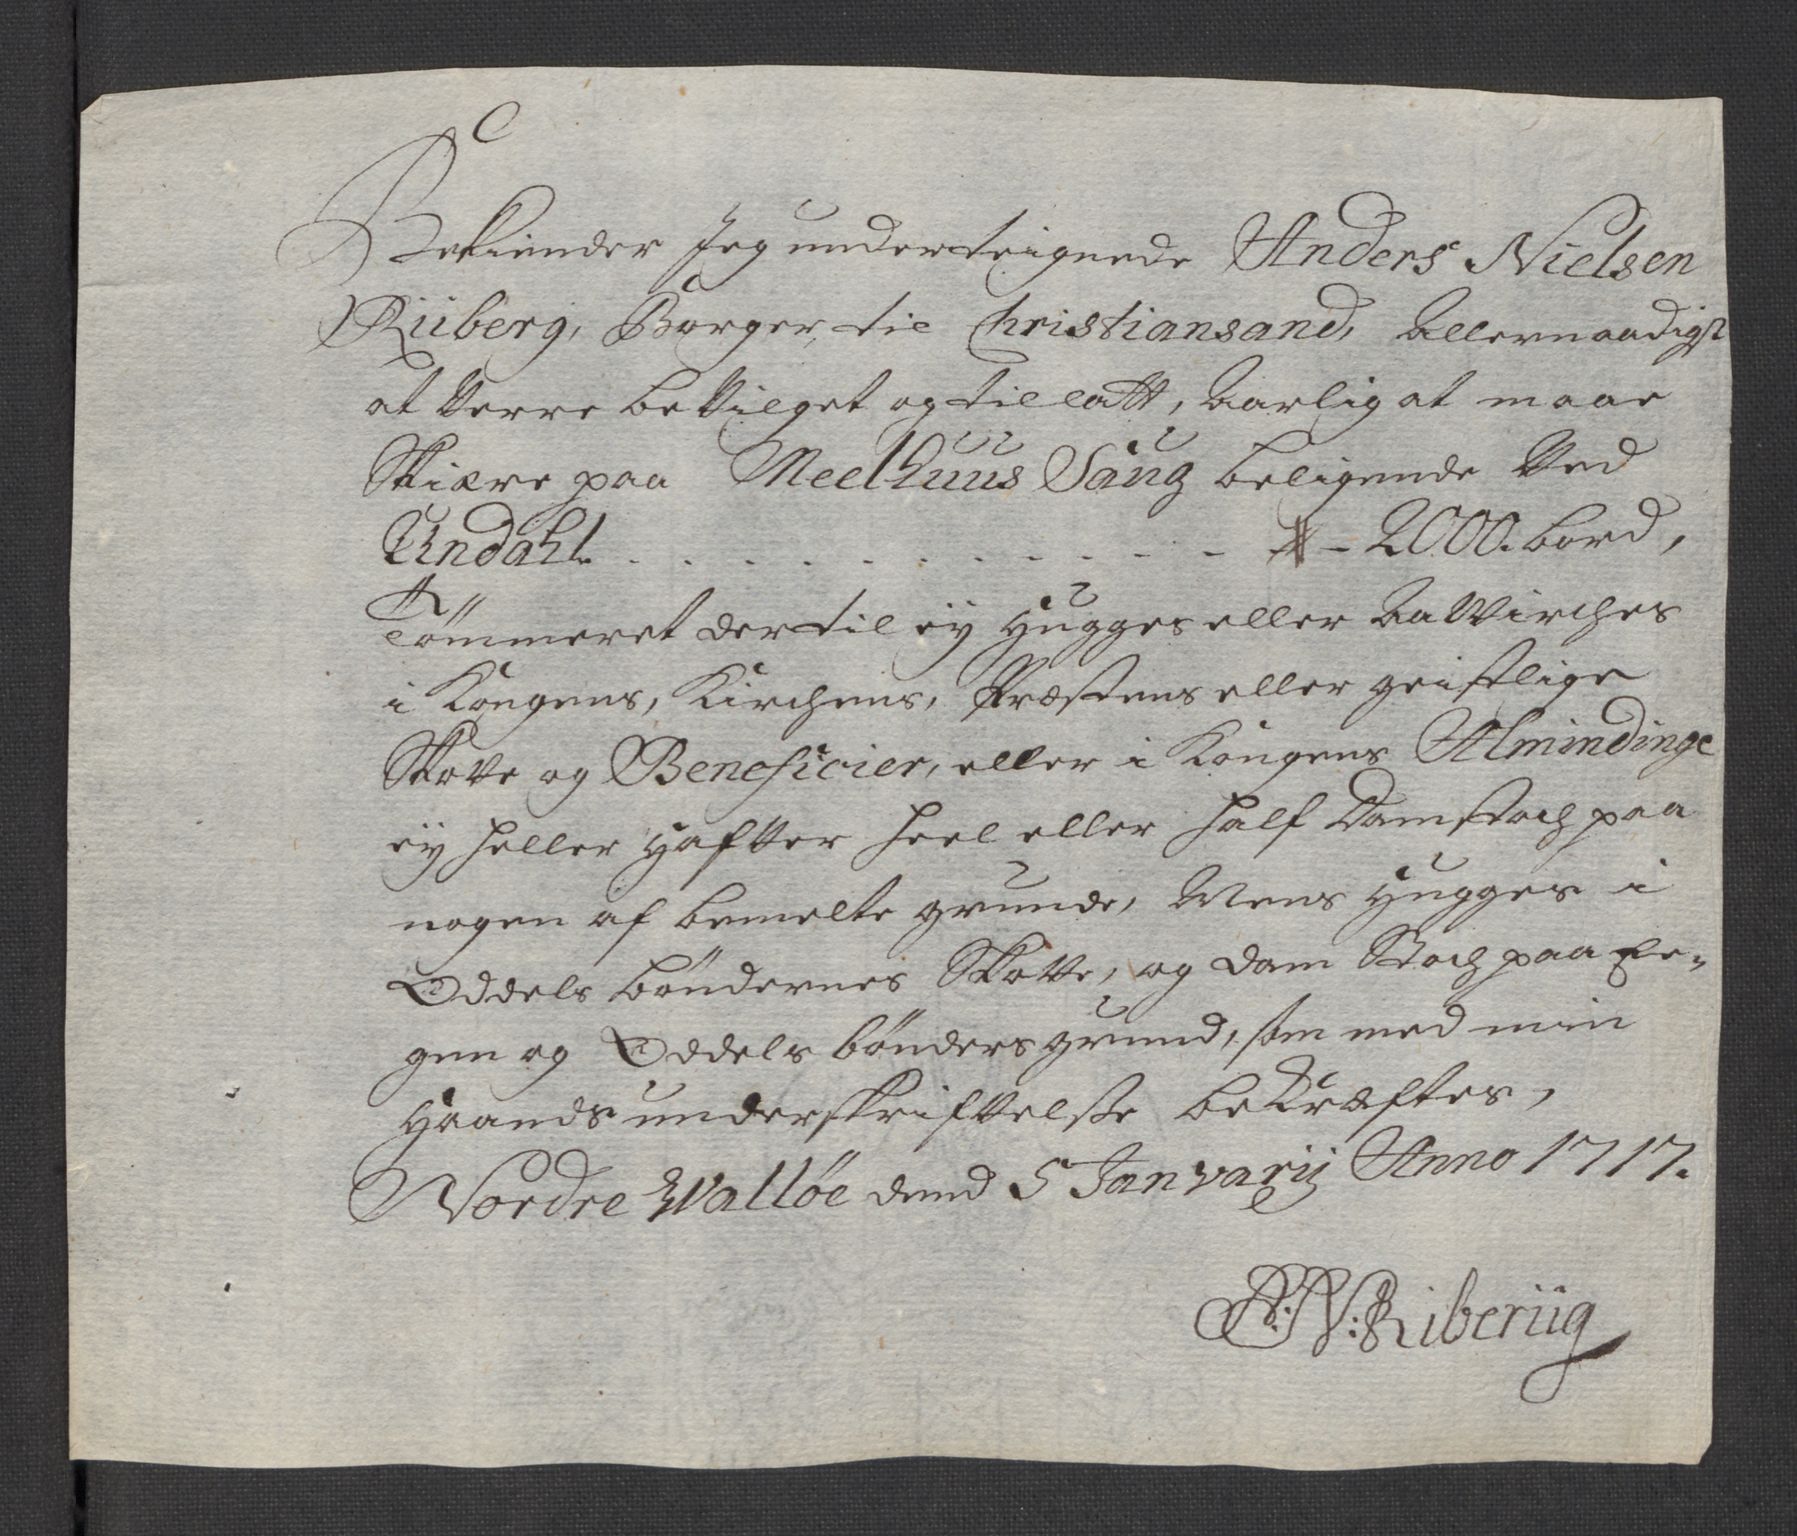 Bekiender Jeg underteignede Anders Nielsen
Riiberg, Borger til Christiansand, Allernaadigst
at Verre beVilget og tillatt, Aarlig at maae
Skiære paa Meelhuus Saug beligende Ved
Undahl. . . . . . . . . . . . - 2000. bord,
Tömmeret der til eÿ Hugges eller aaVirches
i Kongens, Kirchens, Præstens eller geistlige
Skove og Beneficier, eller i Kongens Almindinge
eÿ heller Hafver heel eller half damstoch paa
nogen af bemelte grunde, Mens Hugges i
Oddels böndernes Skove, og dam Stoch paa Ee-
gen og Oddels bönders grund, som med min
Haands underskriftvelsse beKræftes,
Nordre Walløe dend 5 Januarij Anno 1717.
A: N: Riberiig